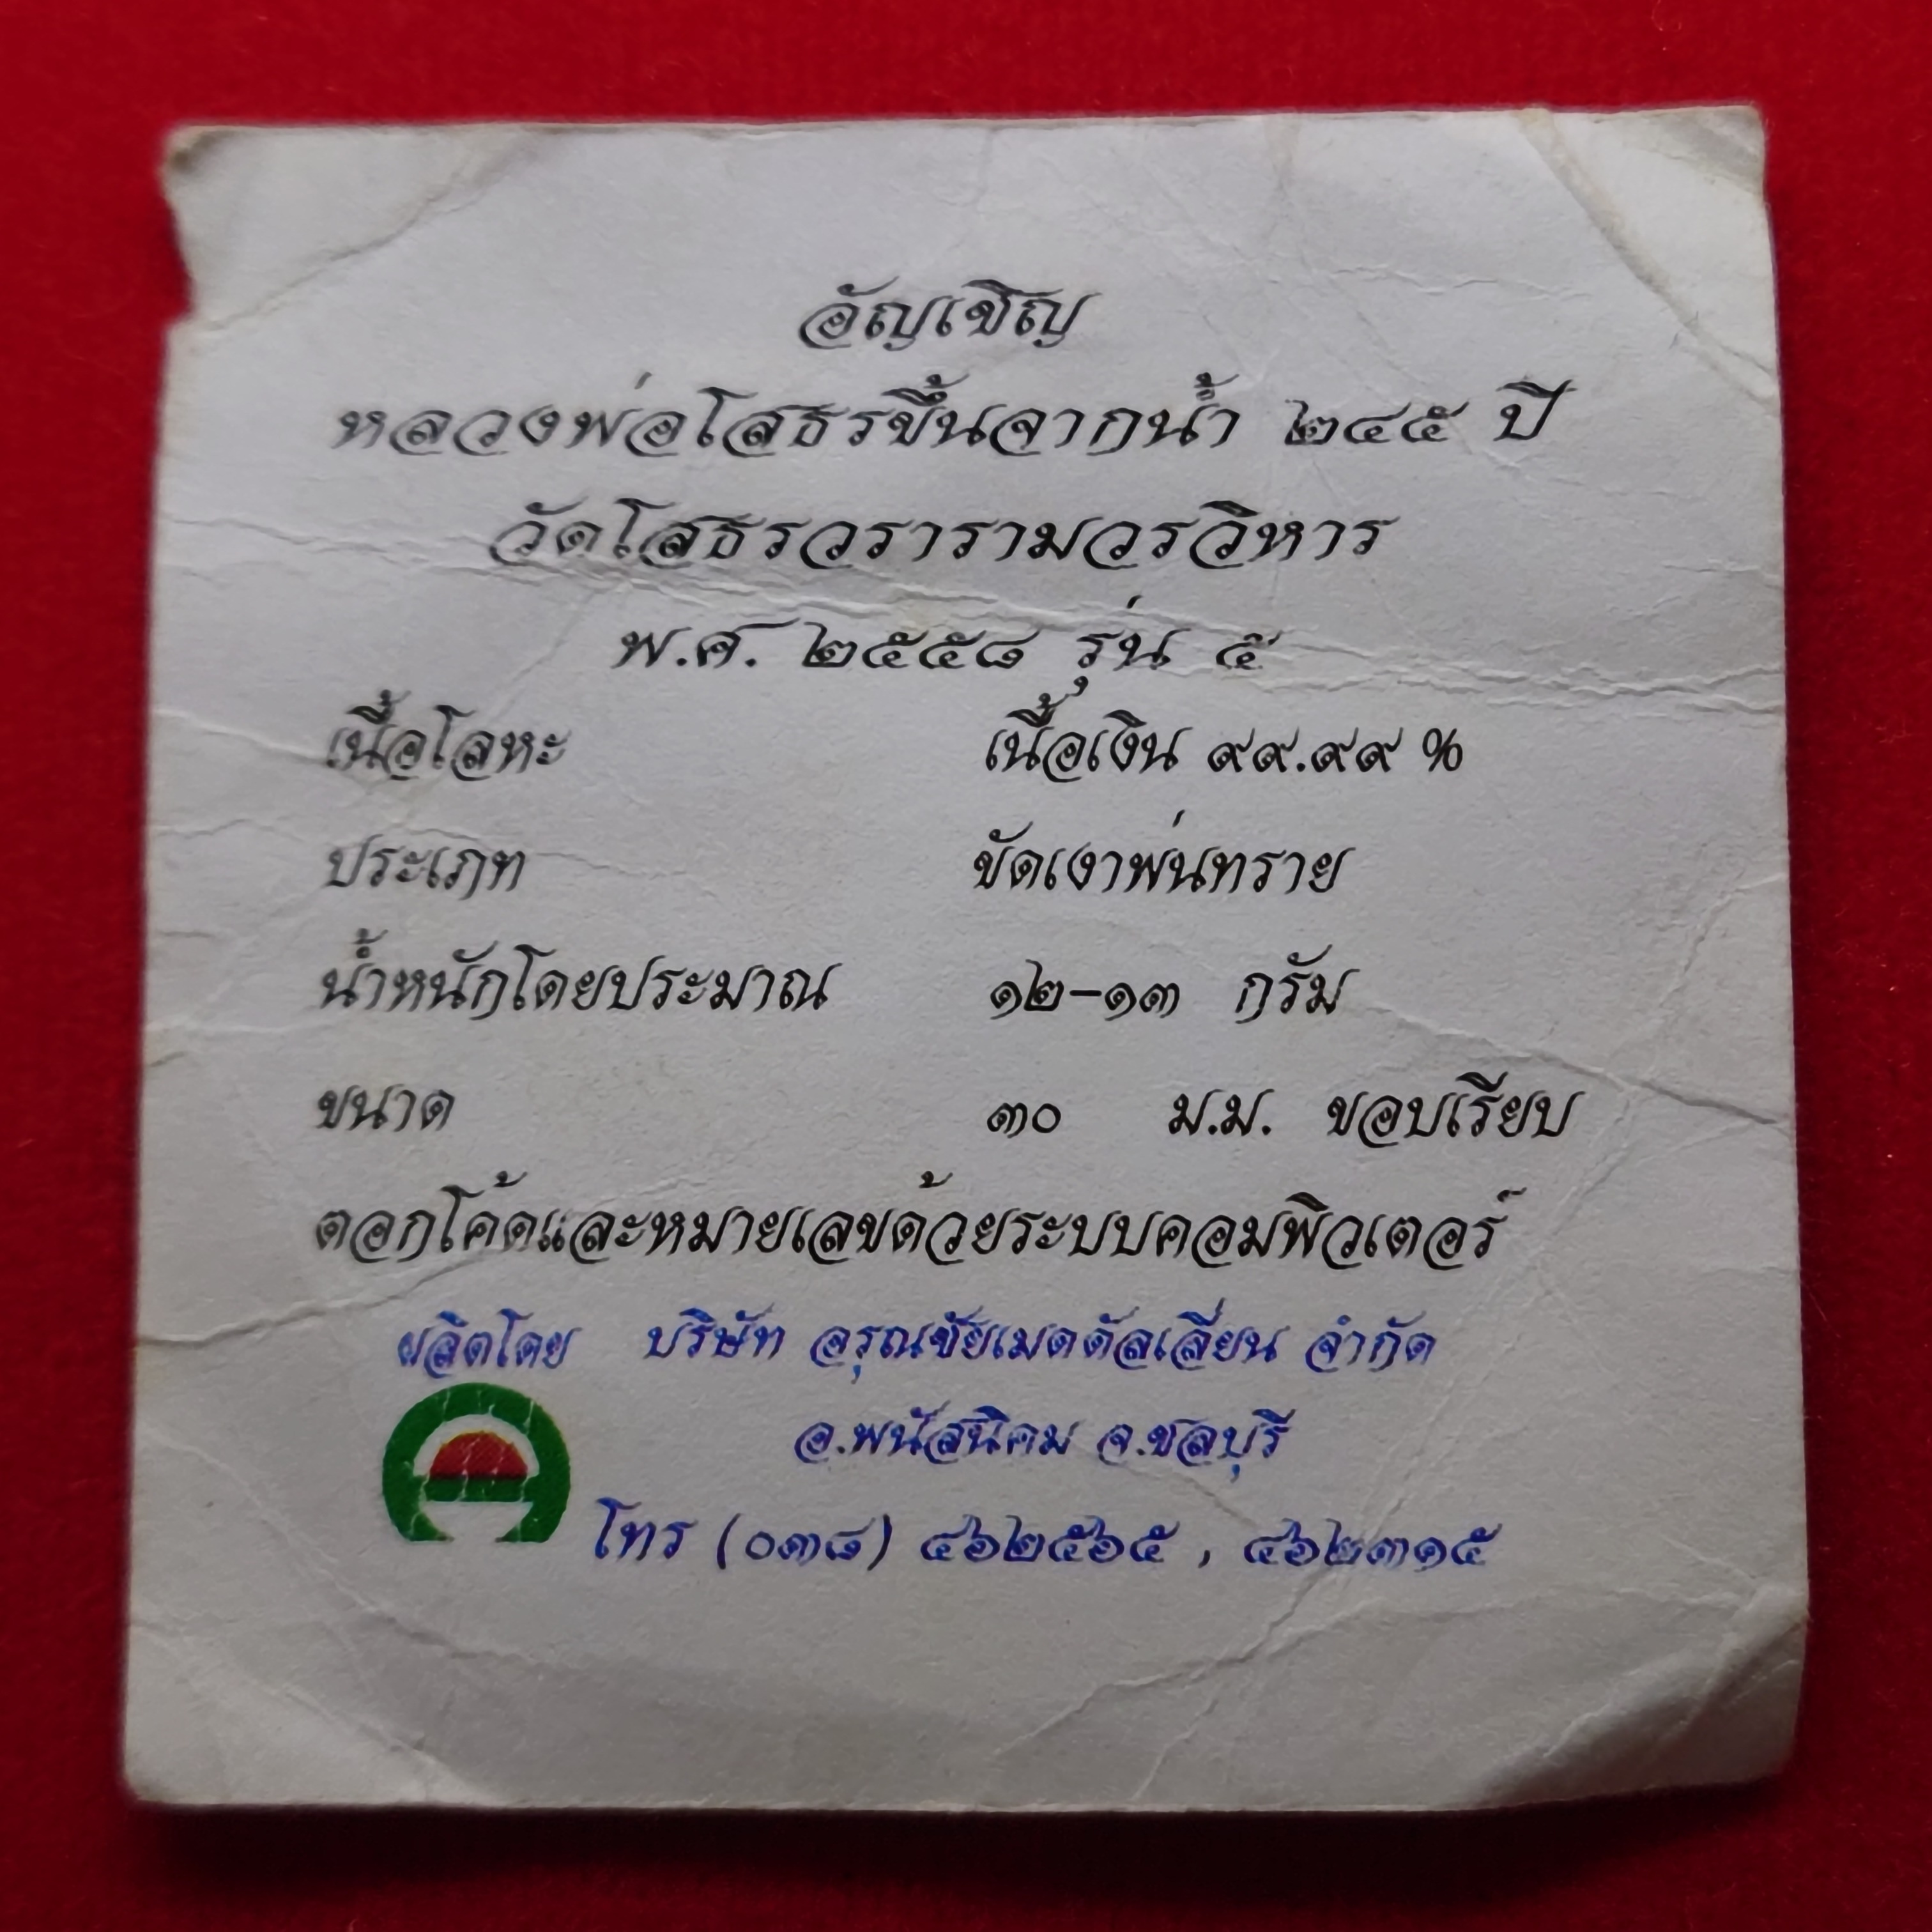 อัญเชิญ
หลวงพ่อโสธรขึ้นจากน้ำ ๒๔๕ ปี
วัดโสธรวรารามวรวิหาร
พ.ศ. ๒๕๕๘ รุ่น ๕
เนื้อโลหะ เนื้อเงิน ๙๙.๙๙ %
ประเภท ขัดเงาพ่นทราย
น้ำหนักโดยประมาณ ๑๒-๑๓ กรัม
ขนาด ๓๐ ม.ม. ขอบเรียบ
ตอกโค้ดและหมายเลขด้วยระบบคอมพิวเตอร์
ผลิตโดย บริษัท อรุณชัยเมดดัลเลี่ยน จำกัด
อ.พนัสนิคม จ.ชลบุรี
โทร (๐๓๘) ๔๖๒๕๖๕ , ๔๖๒๓๑๕